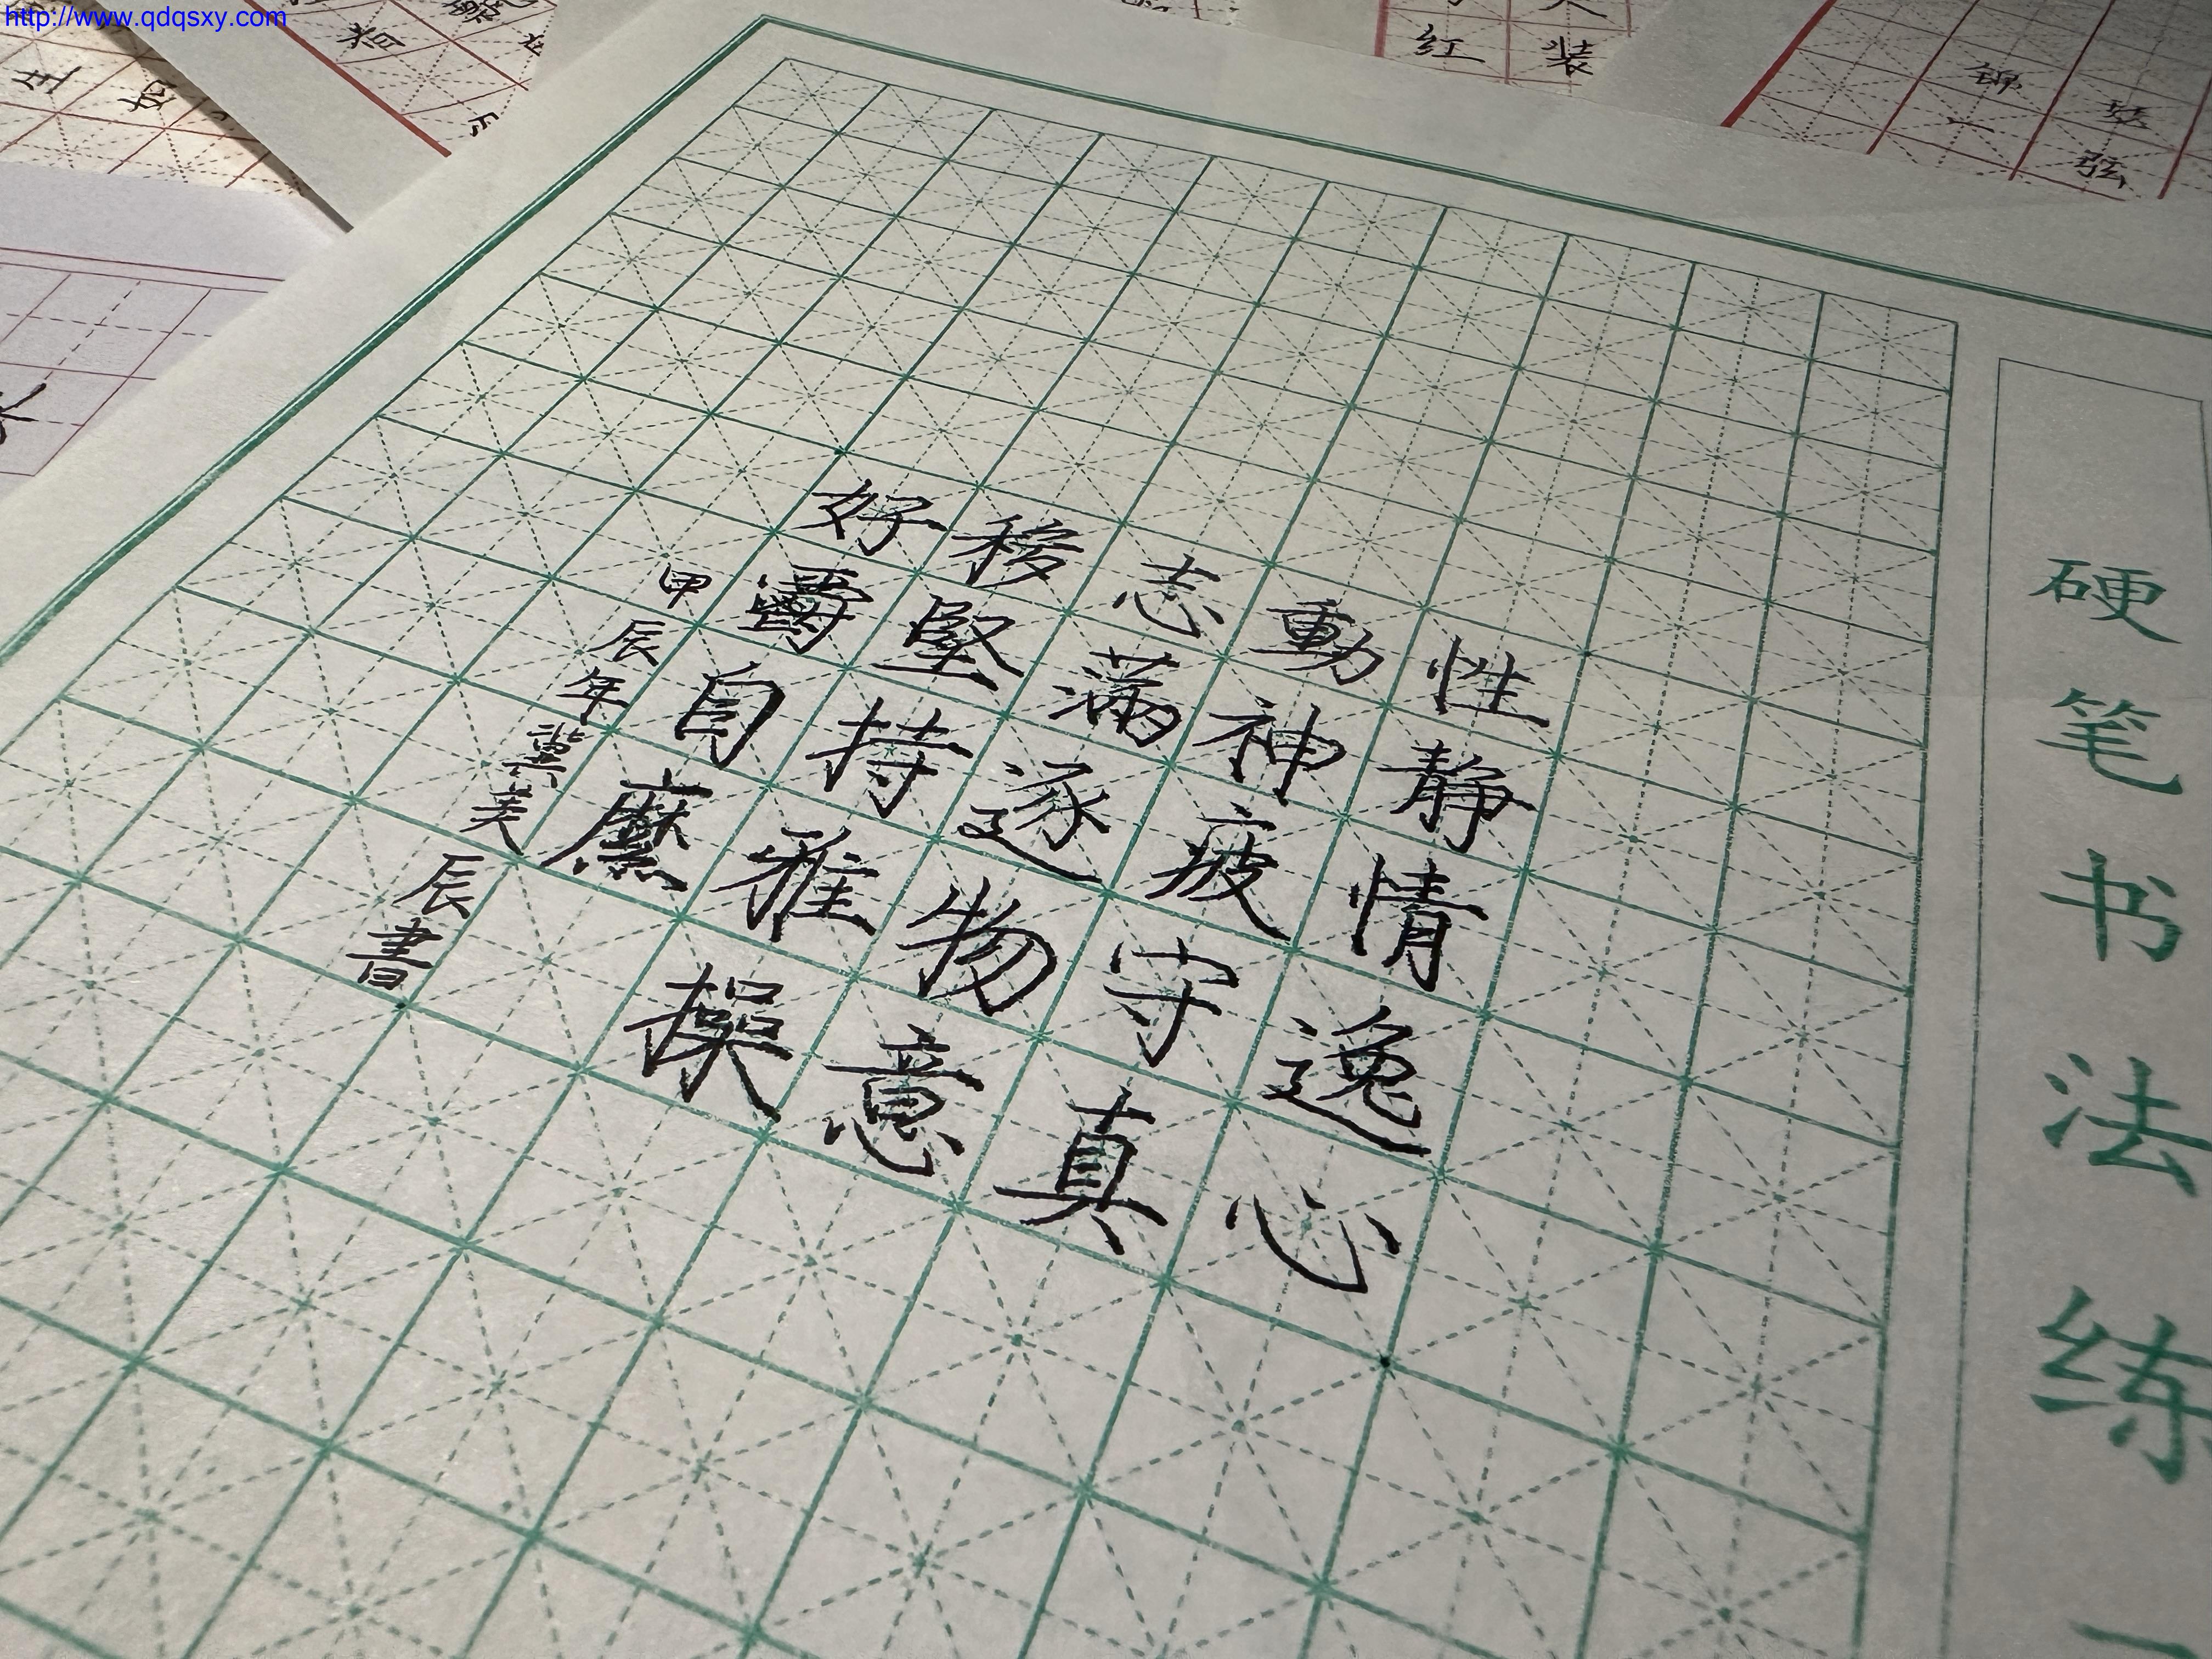 http://www.qdqsxy.com
性静情逸心
動神疲守真
志滿逐物意
移堅持雅操
好爵自縻
甲辰年冀美辰書
硬笔书法练
红
装
锦
瑟
弦
一
将
生
如